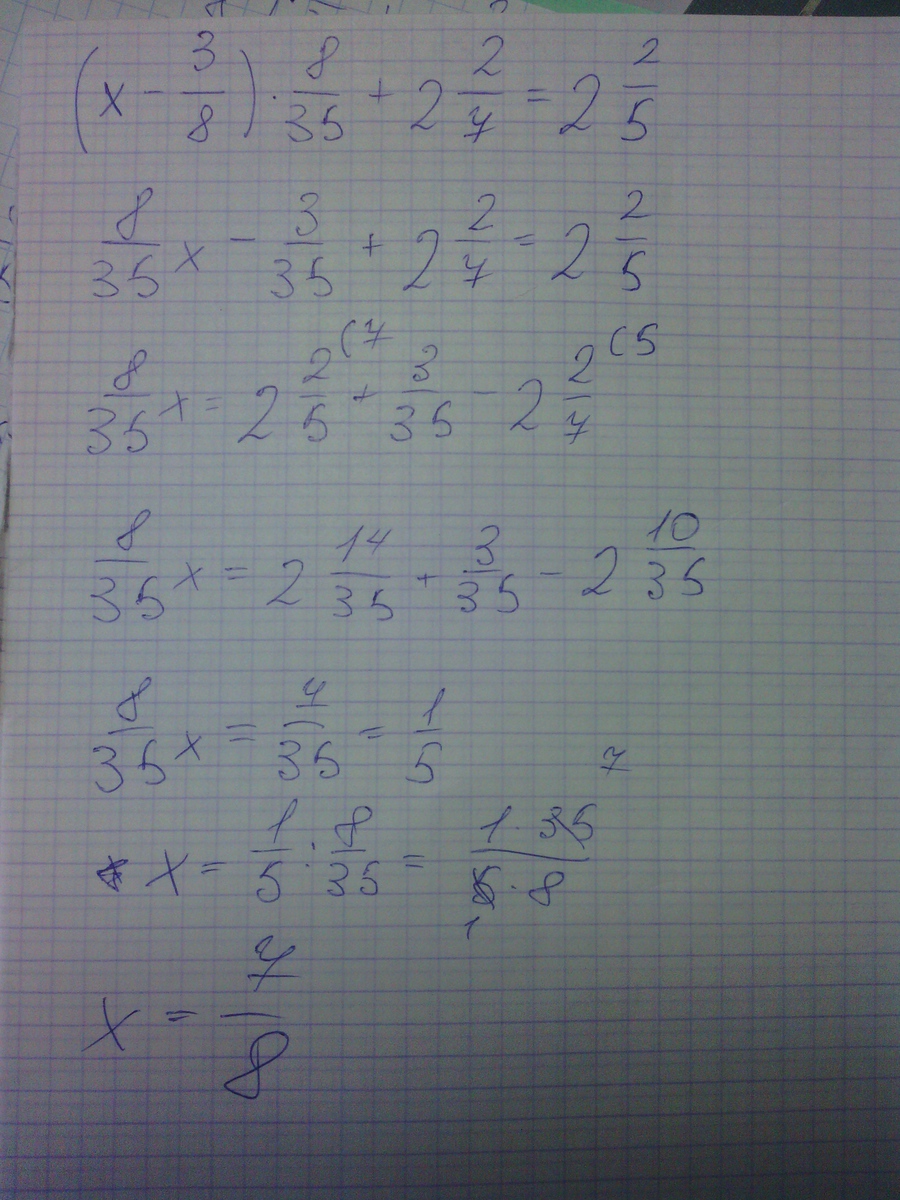 (x - 3/8) · 8/35 + 2 2/7 = 2 2/5
8/35 x - 3/35 + 2 2/7 = 2 2/5
8/35 x = 2 2/5 (7 + 3/35 - 2 2/7 (5
8/35 x = 2 14/35 + 3/35 - 2 10/35
8/35 x = 7/35 = 1/5
x = 1/5 : 8/35 = 1 · 35 7 / 5 1 · 8
x = 7/8